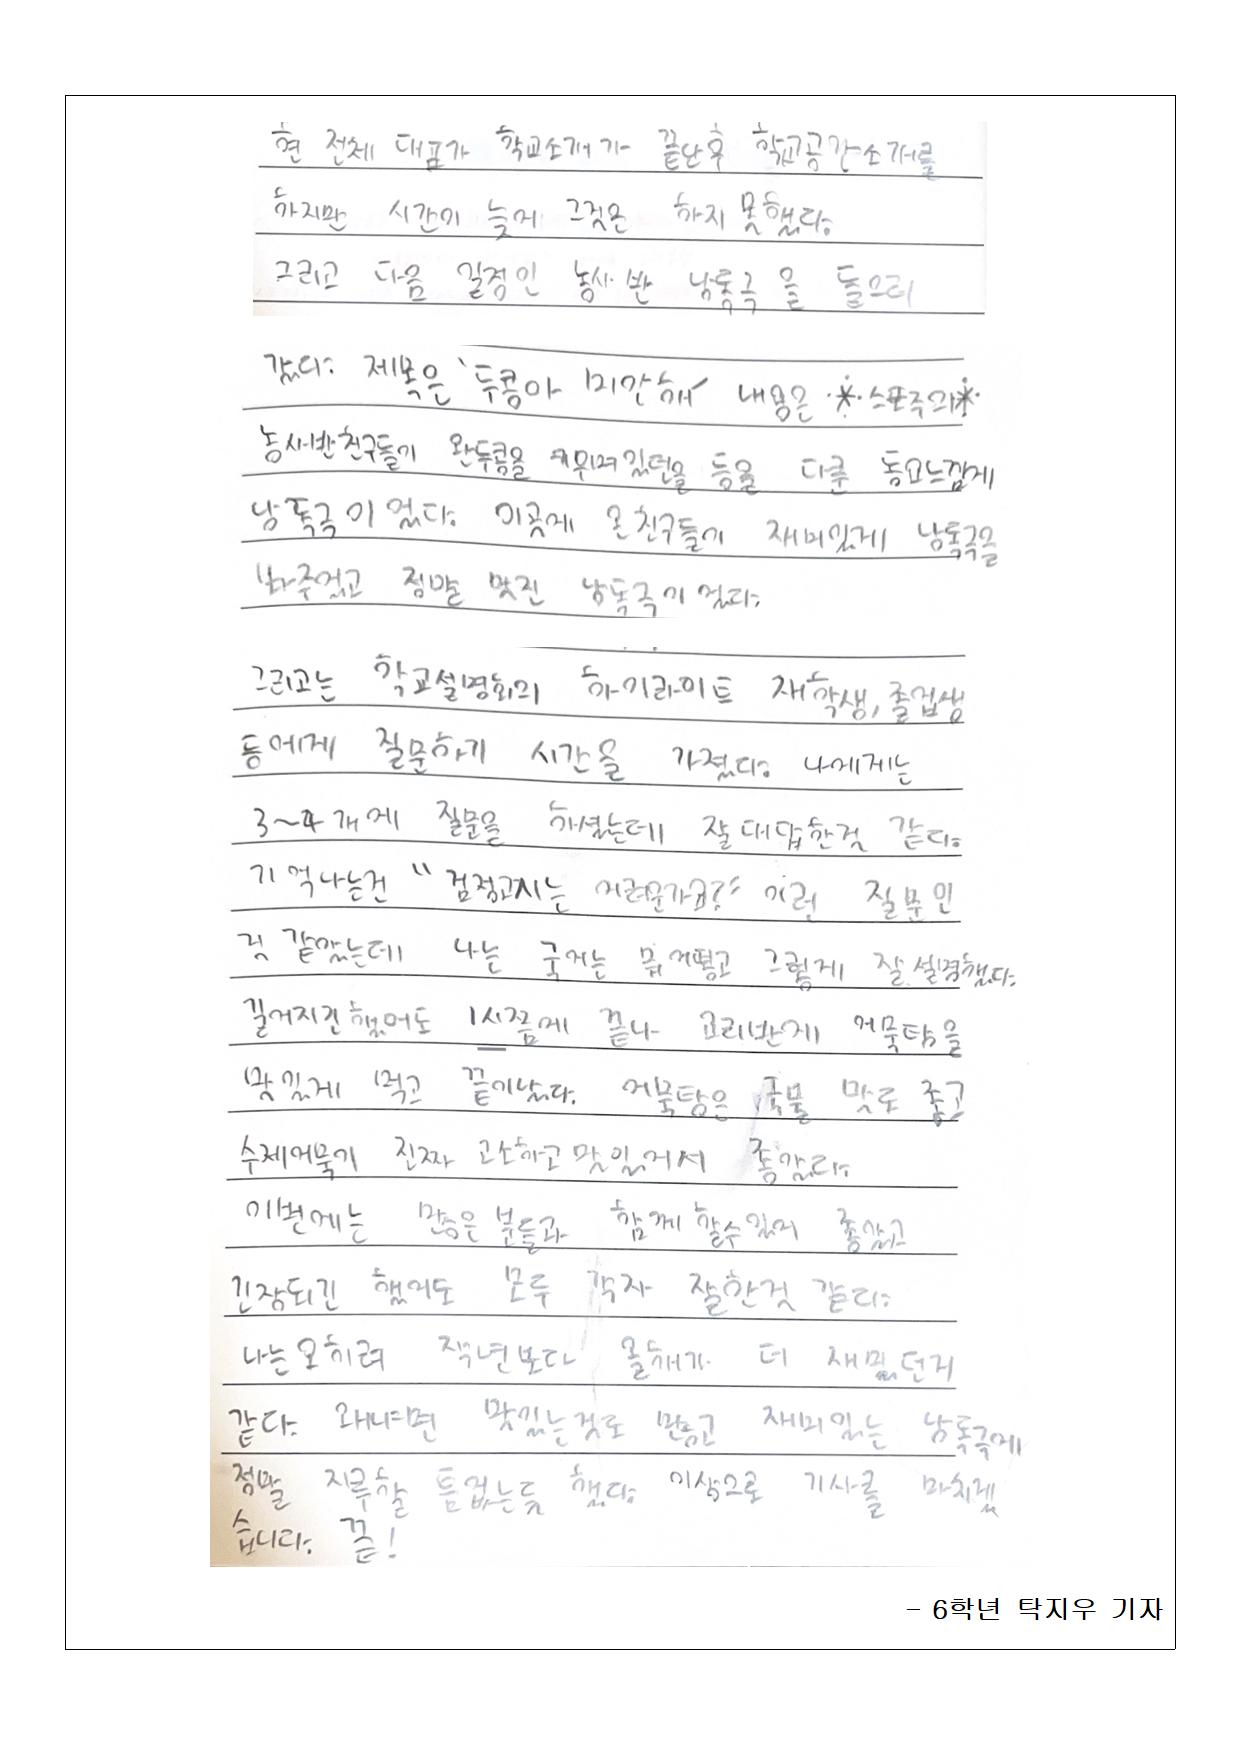 현 전체 대표가 학교소개가 끝난후 학교공간소개를
하지만 시간이 늦게 그것은 하지 못했다.
그리고 다음 일정인 농사반 낭독극을 들으러
갔다. 제목은 '두콩아 미안해' 내용은 스포주의
농사반친구들이 완두콩을 키워 등을 다룬 동요느낌에
낭독극이었다. 이곳에 온친구들이 재미있게 낭독극을
봐주었고 정말 멋진 낭독극이었다.
그리고는 학교설명회의 하이라이트 재학생, 졸업생
등에게 질문하기 시간을 가졌다. 나에게는
3~4개에 질문을 하셨는데 잘대답한것 같다.
기억나는건 "검정고시는 어려운가요?" 이런 질문인
것 같았는데 나는 국어는 뭐 어떻고 그렇게 잘 설명했다.
길어지긴했어도 1시쯤에 끝나 요리반에 어묵탕을
맛있게 먹고 끝이났다. 어묵탕은 국물 맛도 좋고
수제어묵이 진짜 고소하고 맛있어서 좋았다.
이번에는 많은 분들과 함께 할수있어 좋았고
긴장되긴 했어도 모두 각자 잘한것 같다.
나는오히려 작년보다 올해가 더 재밌던거
같다. 왜냐하면 맛있는것도 많고 재미있는 낭독극에
정말 지루할 틈없는듯 했다. 이상으로 기사를 마치겠
습니다. 끝!
- 6학년 탁지우 기자